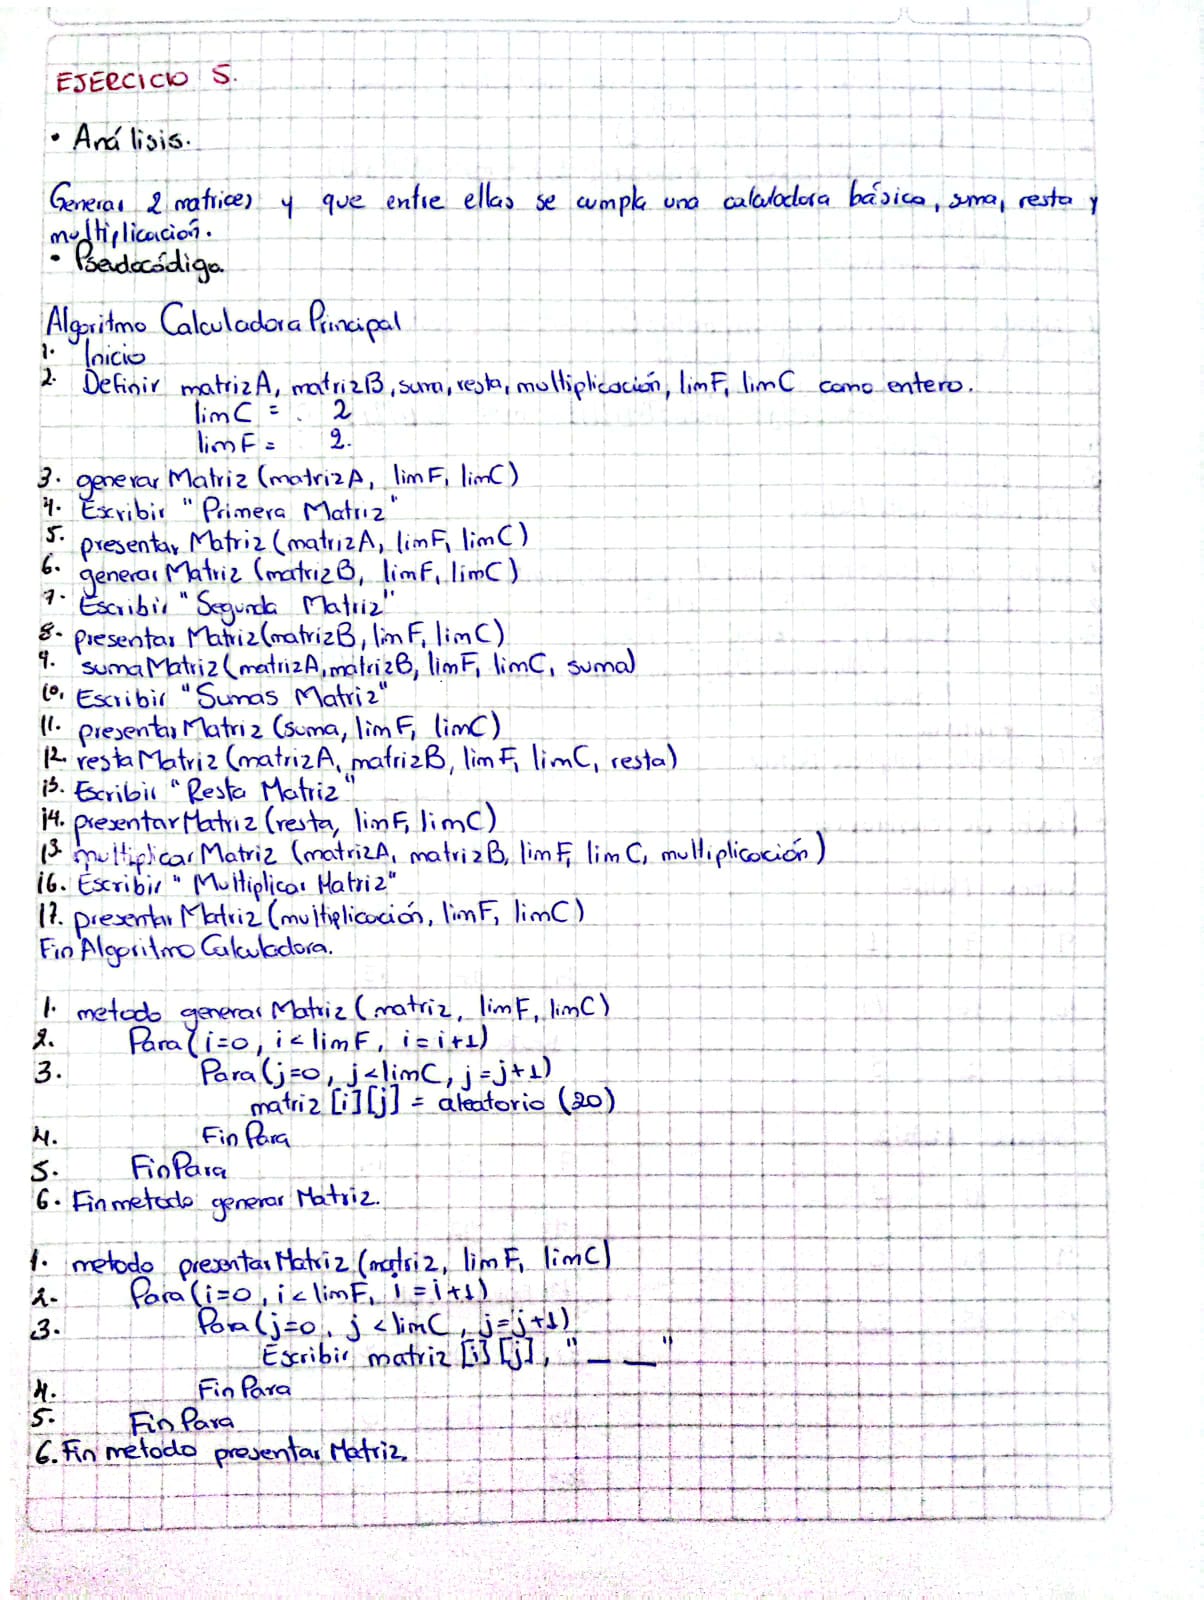 EJERCICIO 5.
• Análisis.
Generar 2 matrices y que entre ellas se cumpla una calculadora básica, suma, resta y
multiplicación.
• Pseudocódigo.
Algoritmo Calculadora Principal
1. Inicio
2. Definir matrizA, matrizB, suma, resta, multiplicación, limF, limC como entero.
limC = 2
limF = 2.
3. generar Matriz (matrizA, limF, limC)
4. Escribir "Primera Matriz"
5. presentar Matriz (matrizA, limF, limC)
6. generar Matriz (matrizB, limF, limC)
7. Escribir "Segunda Matriz"
8. presentar Matriz (matrizB, limF, limC)
9. suma Matriz (matrizA, matrizB, limF, limC, suma)
10. Escribir "Sumas Matriz"
11. presentar Matriz (suma, limF, limC)
12. resta Matriz (matrizA, matrizB, limF, limC, resta)
13. Escribir "Resta Matriz"
14. presentar Matriz (resta, limF, limC)
15. multiplicar Matriz (matrizA, matrizB, limF, limC, multiplicación)
16. Escribir "Multiplicar Matriz"
17. presentar Matriz (multiplicación, limF, limC)
Fin Algoritmo Calculadora.
1. metodo generar Matriz (matriz, limF, limC)
2. Para (i=0, i < limF, i = i+1)
3. Para (j=0, j < limC, j = j+1)
matriz [i][j] = aleatorio (20)
4. Fin Para
5. Fin Para
6. Fin metodo generar Matriz.
1. metodo presentar Matriz (matriz, limF, limC)
2. Para (i=0, i < limF, i = i+1)
3. Para (j=0, j < limC, j = j+1)
Escribir matriz [i][j], "_ _"
4. Fin Para
5. Fin Para
6. Fin metodo presentar Matriz.